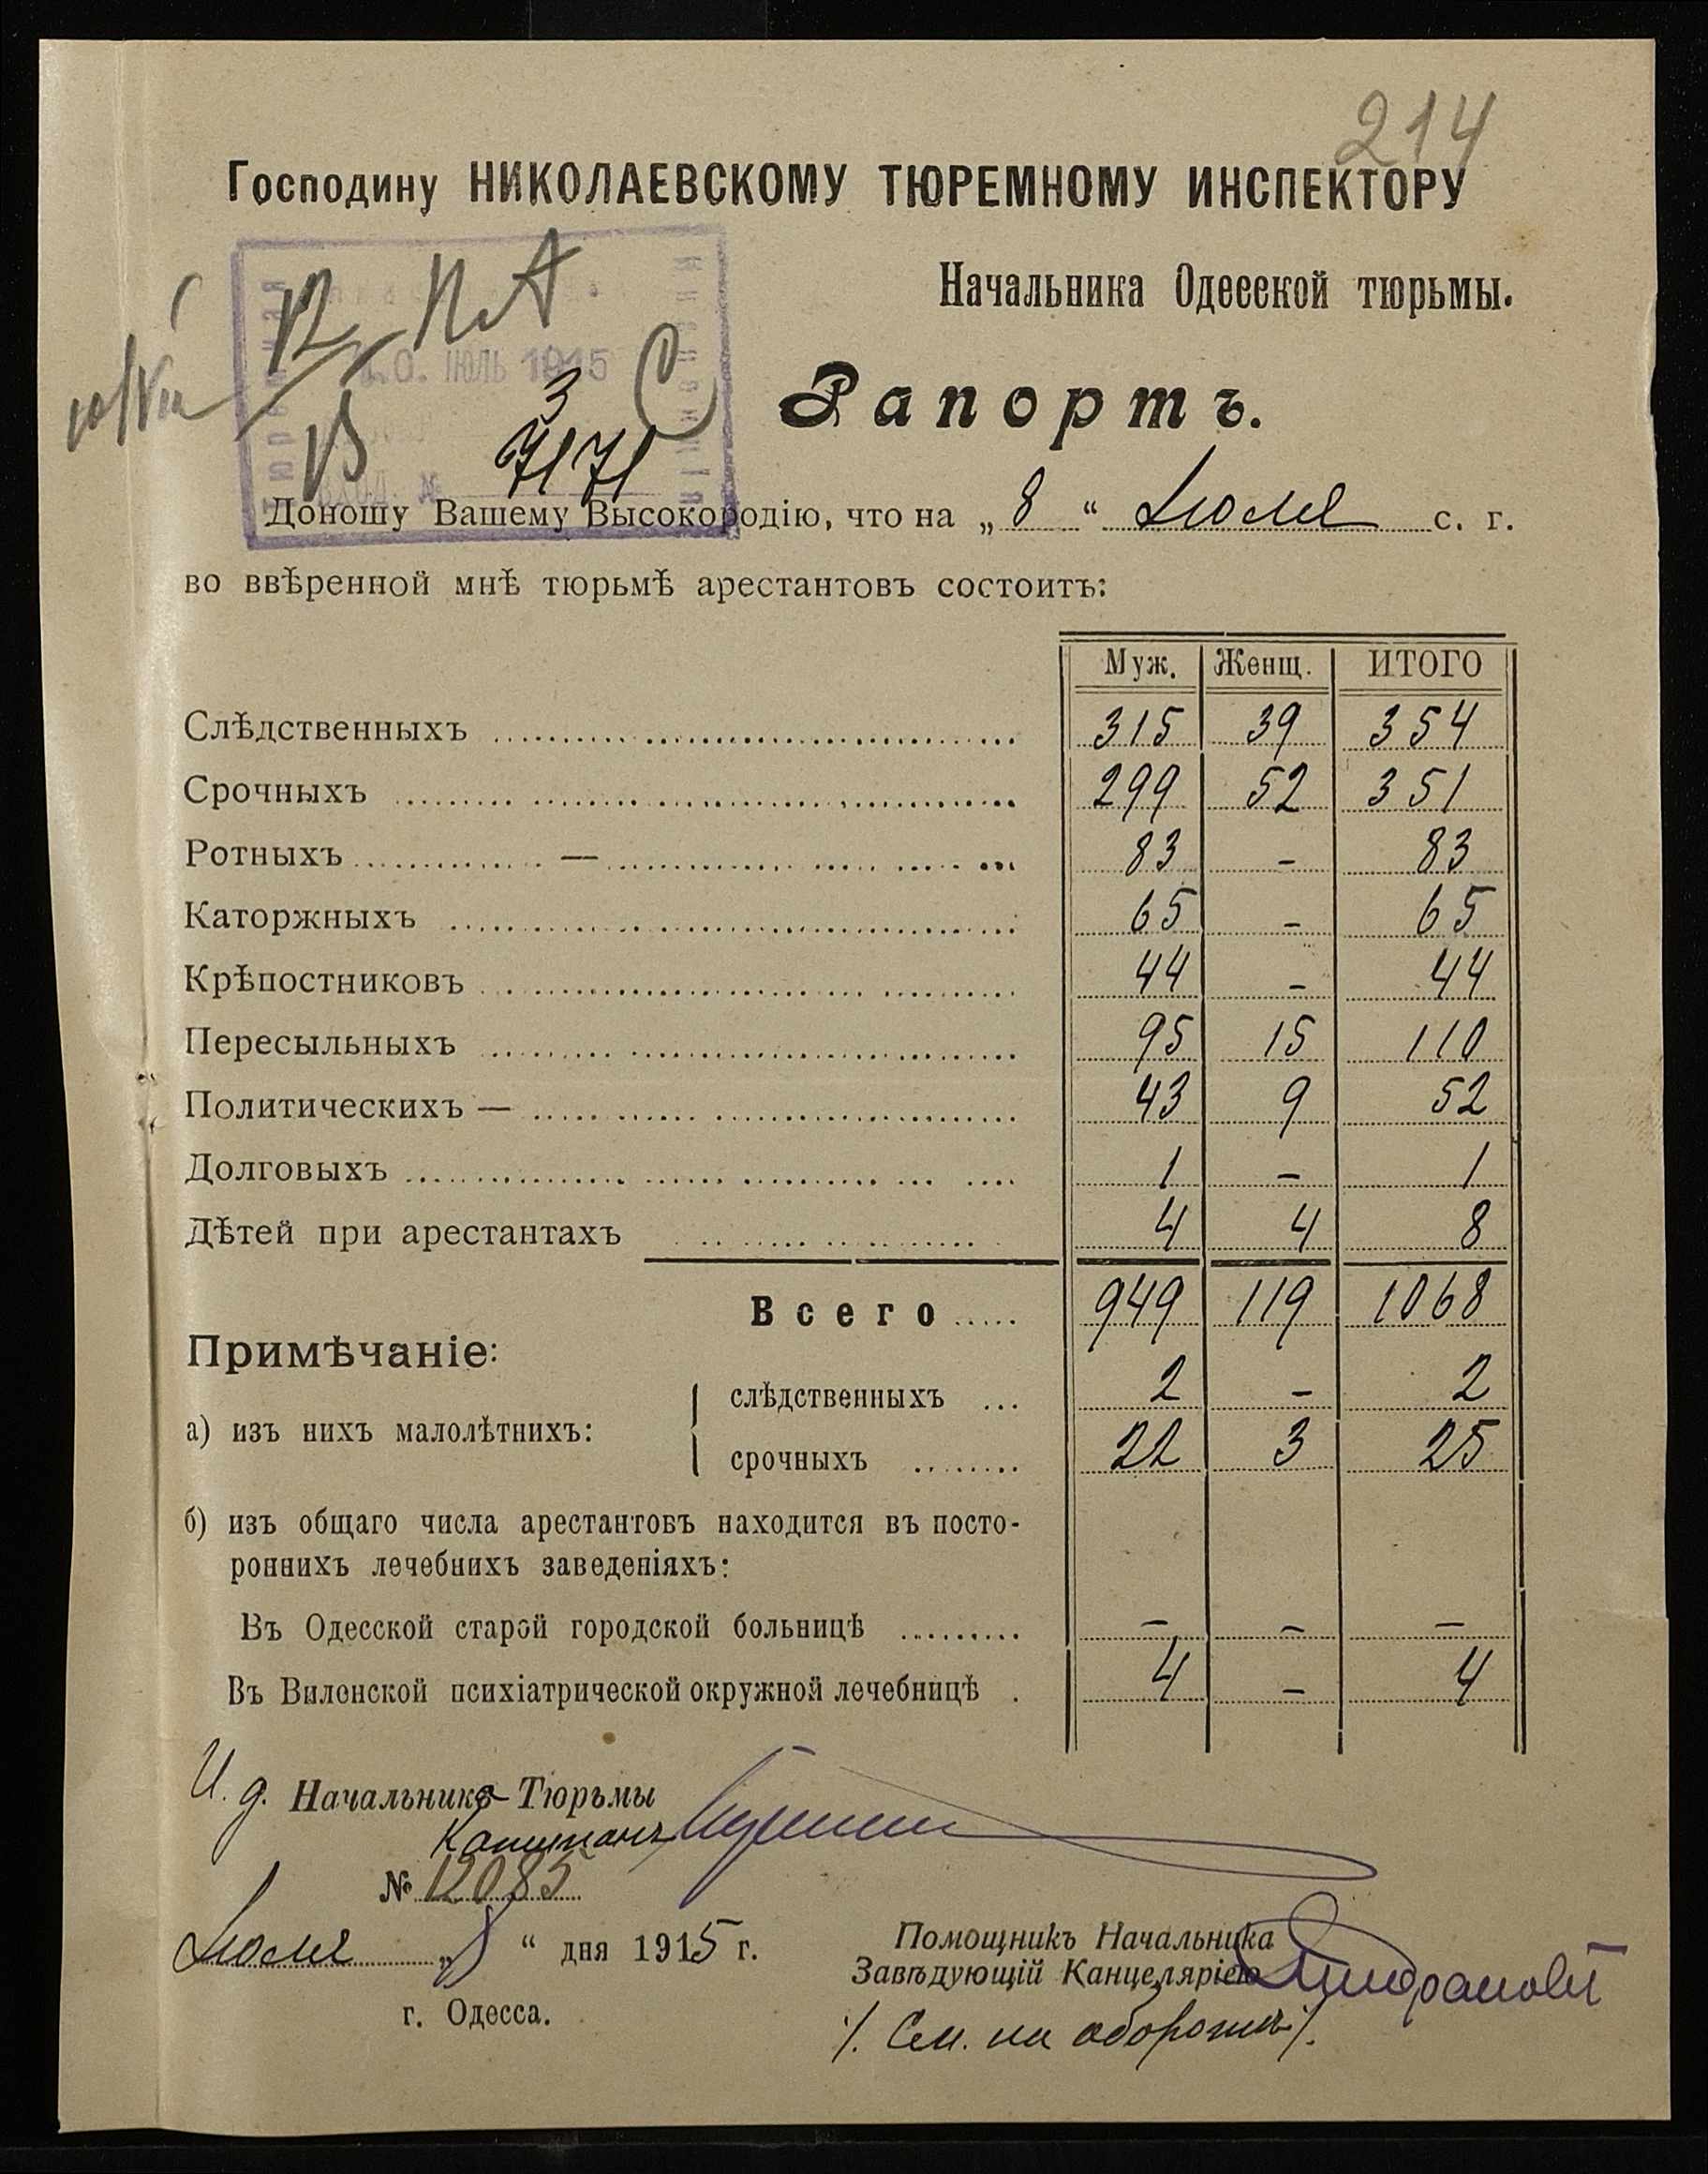 214
Господину НИКОЛАЕВСКОМУ ТЮРЕМНОМУ ИНСПЕКТОРУ
Начальника Одесской тюрьмы.
ИЮЛЬ 1915
Рапортъ.
3
7171
Доношу Вашему Высокородію, что на „ 8 “ Июля с. г.
во ввѣренной мнѣ тюрьмѣ арестантовъ состоитъ:
Муж. Женщ. ИТОГО
Слѣдственныхъ 315 39 354
Срочныхъ 299 52 351
Ротныхъ — 83 - 83
Каторжныхъ 65 - 65
Крѣпостниковъ 44 - 44
Пересыльныхъ 95 15 110
Политическихъ — 43 9 52
Долговыхъ 1 - 1
Дѣтей при арестантахъ 4 4 8
Всего 949 119 1068
Примѣчаніе:
слѣдственныхъ 2 - 2
а) изъ нихъ малолѣтнихъ:
срочныхъ 22 3 25
б) изъ общаго числа арестантовъ находится въ посто-
роннихъ лечебнихъ заведеніяхъ:
Въ Одесской старой городской больницѣ - - -
Въ Виленской психіатрической окружной лечебницѣ 4 - 4
И. д. Начальника Тюрьмы
Капитанъ
№ 12085
Июля „ 8 “ дня 1915 г.
г. Одесса.
Помощникъ Начальника
Завѣдующій Канцеляріею
/. См. на оборотѣ /.